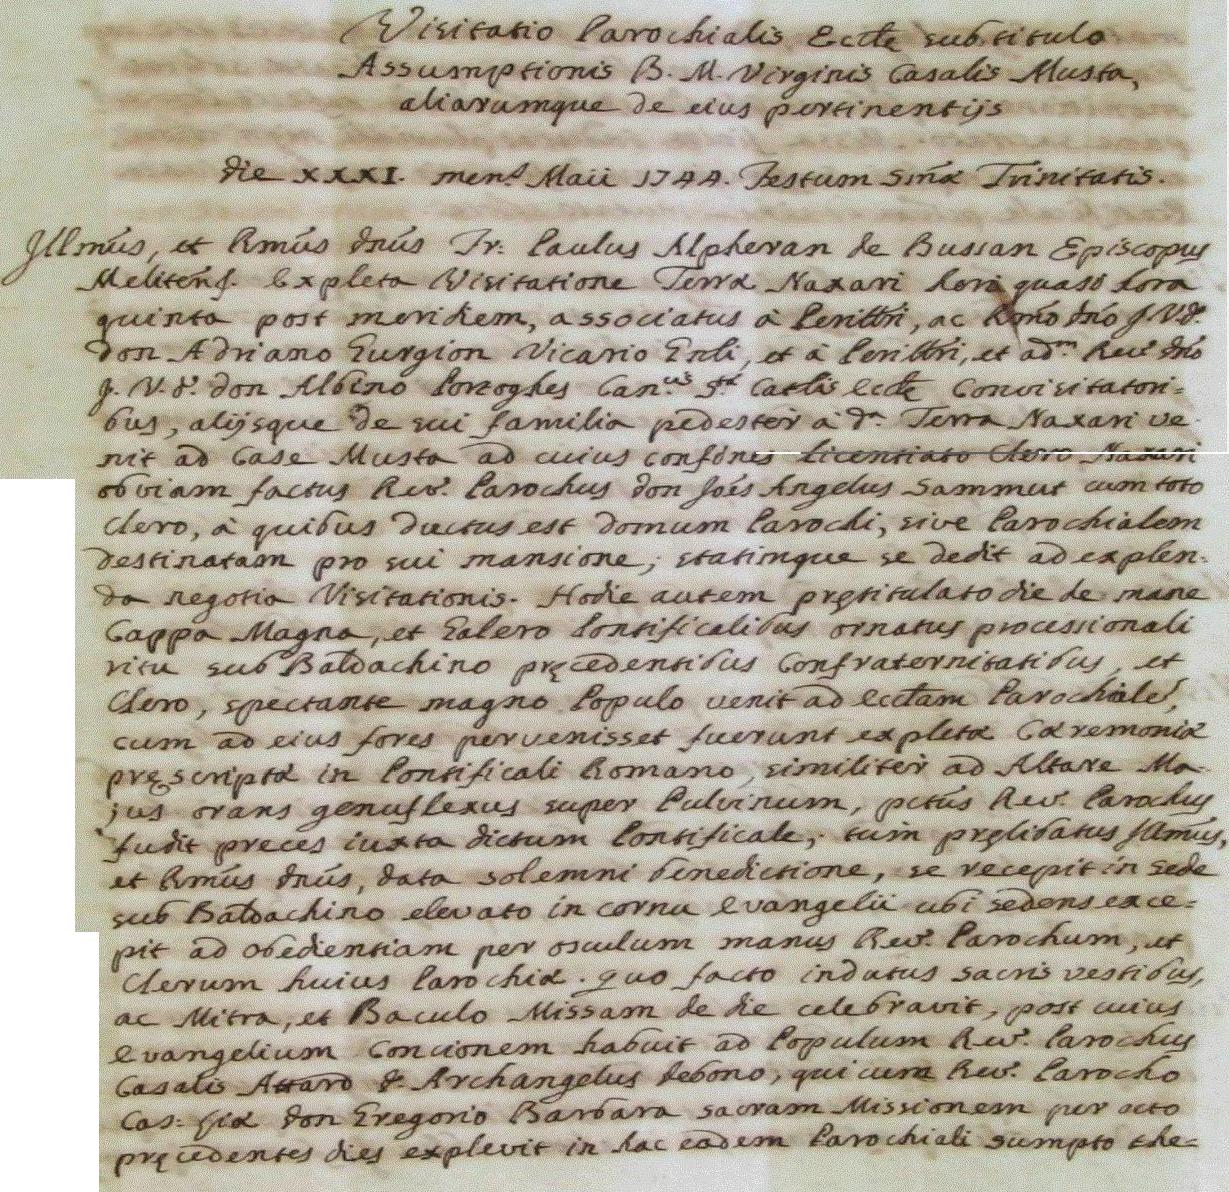 Visitatio Parochialis Eccłæ sub titulo
Assumptionis B. M. Virginis Casalis Musta,
aliarumque de eius pertinentijs
die XXXI. mens Maii 1744. Festum Smæ Trinitatis.
Illmũs, et Rmũs dnũs Fr: Paulus Alpheran de Bussan Episcopus
Melitens. Expleta Visitatione Terræ Naxari heri quasi hora
quinta post meridiem, associatus à Perillri, ac Rmo dno J.V.D.
don Adriano Gurgion Vicario Gnli, et à Perillri, et adm Revdo dno
J. V. D. don Albino Porzoghes Can.cus S.tæ Catlis Eccłæ Convisitatori-
bus, alijsque de sui familia pedester à d.a Terra Naxari ve-
nit ad Case Musta ad cuius confines licentiato Clero Naxari
obviam factus Rev. Parochus don Joẽs Angelus Sammut cum toto
Clero, à quibus ductus est domum Parochi, sive Parochialem
destinatam pro sui mansione; statimque se dedit ad explen-
da negotia Visitationis. Hodie autem prętitulato die de mane
Cappa Magna, et Galero Pontificalibus ornatus processionali
ritu sub Baldachino pręcedentibus Confraternitatibus, et
Clero, spectante magno Populo venit ad eccłam Parochiale,
cum ad eius fores pervenisset fuerunt expletæ Cæremoniæ
pręscriptæ in Pontificali Romano, similiter ad Altare Ma-
jus orans genuflexus super Pulvinum, pctũs Rev. Parochus
fudit preces iuxta dictum Pontificale; tum pręlibatus Illmũs,
et Rmũs dnũs, data solemni benedictione, se recepit in sede
sub Baldachino elevato in cornu Evangelii ubi sedens exce=
pit ad obedientiam per osculum manus Rev. Parochum, et
Clerum huius Parochiæ. quo facto indutus sacris vestibus,
ac Mitra, et Baculo Missam de die celebravit, post cuius
Evangelium Concionem habuit ad Populum Rev. Parochus
Casalis Attard D. Archangelus debono, qui cum Rev. Parocho
Cas: Liæ don Gregorio Barbara sacram Missionem per octo
pręcedentes dies explevit in hac eadem Parochiali sumpto the=